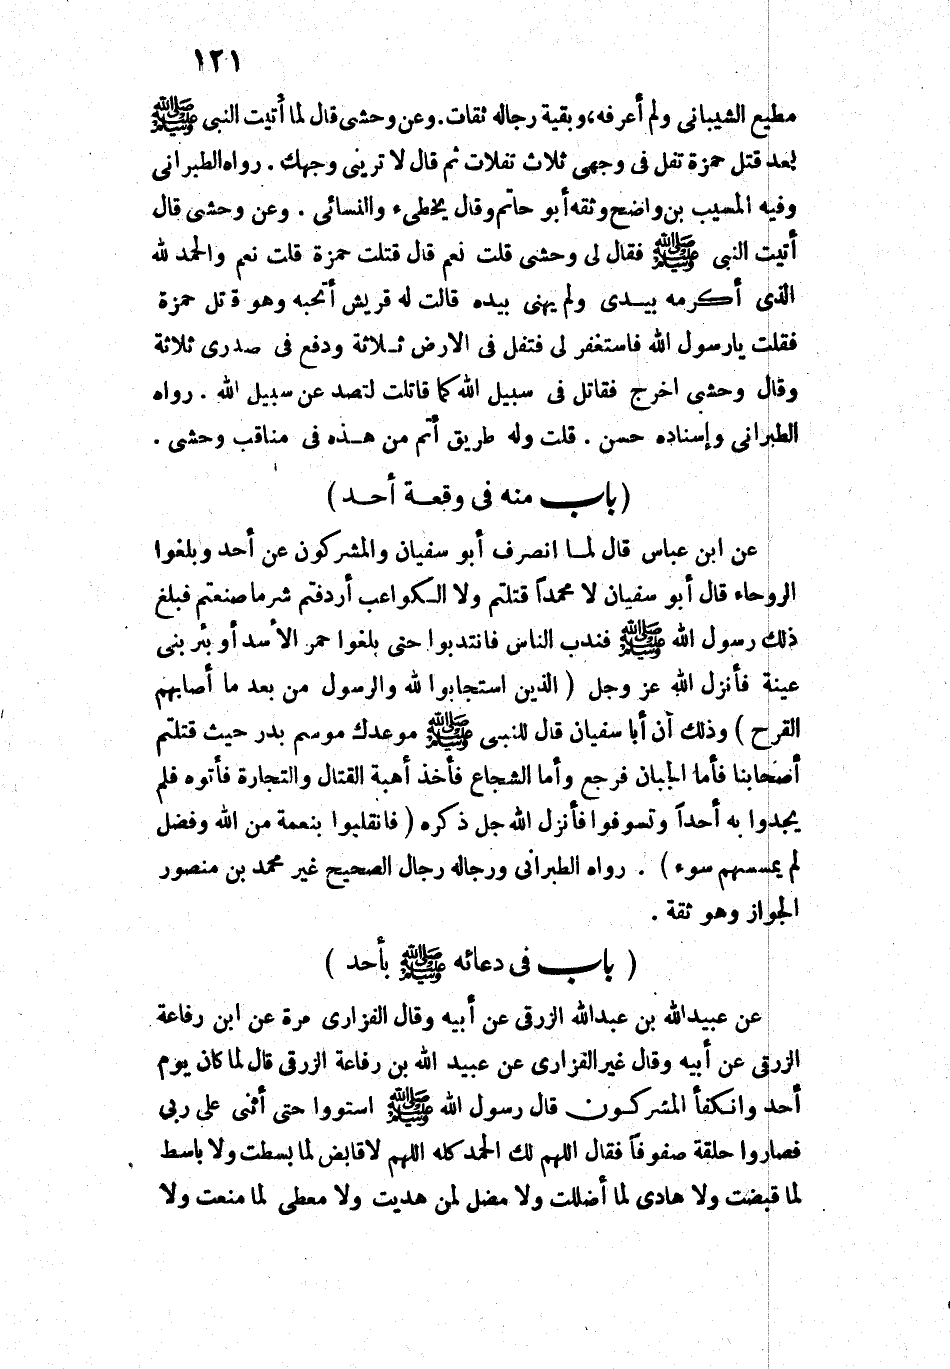 ١٢١
مطيع الشيبانى ولم أعرفه، وبقية رجاله ثقات. وعن وحشى قال لما أتيت النبى ﷺ
بعد قتل حمزة تفل فى وجهى ثلاث تفلات ثم قال لا ترينى وجهك. رواه الطبرانى
وفيه المسيب بن واضح وثقه أبو حاتم وقال يخطىء والنسائى. وعن وحشى قال
أتيت النبى ﷺ فقال لى وحشى قلت نعم قال قتلت حمزة قلت نعم والحمد لله
الذى أكرمه بيدى ولم يهنى بيده قالت له قريش أتحبه وهو قاتل حمزة
فقلت يارسول الله فاستغفر لى فتفل فى الارض ثلاثة ودفع فى صدرى ثلاثة
وقال وحشى اخرج فقاتل فى سبيل الله كما قاتلت لتصد عن سبيل الله. رواه
الطبرانى وإسناده حسن. قلت وله طريق أتم من هذه فى مناقب وحشى.
(باب منه فى وقعة أحد)
عن ابن عباس قال لما انصرف أبو سفيان والمشركون عن أحد وبلغوا
الروحاء قال أبو سفيان لا محمداً قتلتم ولا الكواعب أردفتم شر ما صنعتم فبلغ
ذلك رسول الله ﷺ فندب الناس فانتدبوا حتى بلغوا حمر الأسد أو بئر بنى
عينة فأنزل الله عز وجل (الذين استجابوا لله والرسول من بعد ما أصابهم
القرح) وذلك أن أبا سفيان قال للنبى ﷺ موعدك موسم بدر حيث قتلتم
أصحابنا فأما الجبان فرجع وأما الشجاع فأخذ أهبة القتال والتجارة فأتوه فلم
يجدوا به أحداً وتسوقوا فأنزل الله جل ذكره (فانقلبوا بنعمة من الله وفضل
لم يمسسهم سوء). رواه الطبرانى ورجاله رجال الصحيح غير محمد بن منصور
الجواز وهو ثقة.
(باب فى دعائه ﷺ بأحد)
عن عبيدالله بن عبدالله الزرقى عن أبيه وقال الفزارى مرة عن ابن رفاعة
الزرقى عن أبيه وقال غير الفزارى عن عبيد الله بن رفاعة الزرقى قال لما كان يوم
أحد وانكفأ المشركون قال رسول الله ﷺ استووا حتى أثنى على ربى
فصاروا حلقة صفوفاً فقال اللهم لك الحمد كله اللهم لا قابض لما بسطت ولا باسط
لما قبضت ولا هادى لما أضللت ولا مضل لمن هديت ولا معطى لما منعت ولا